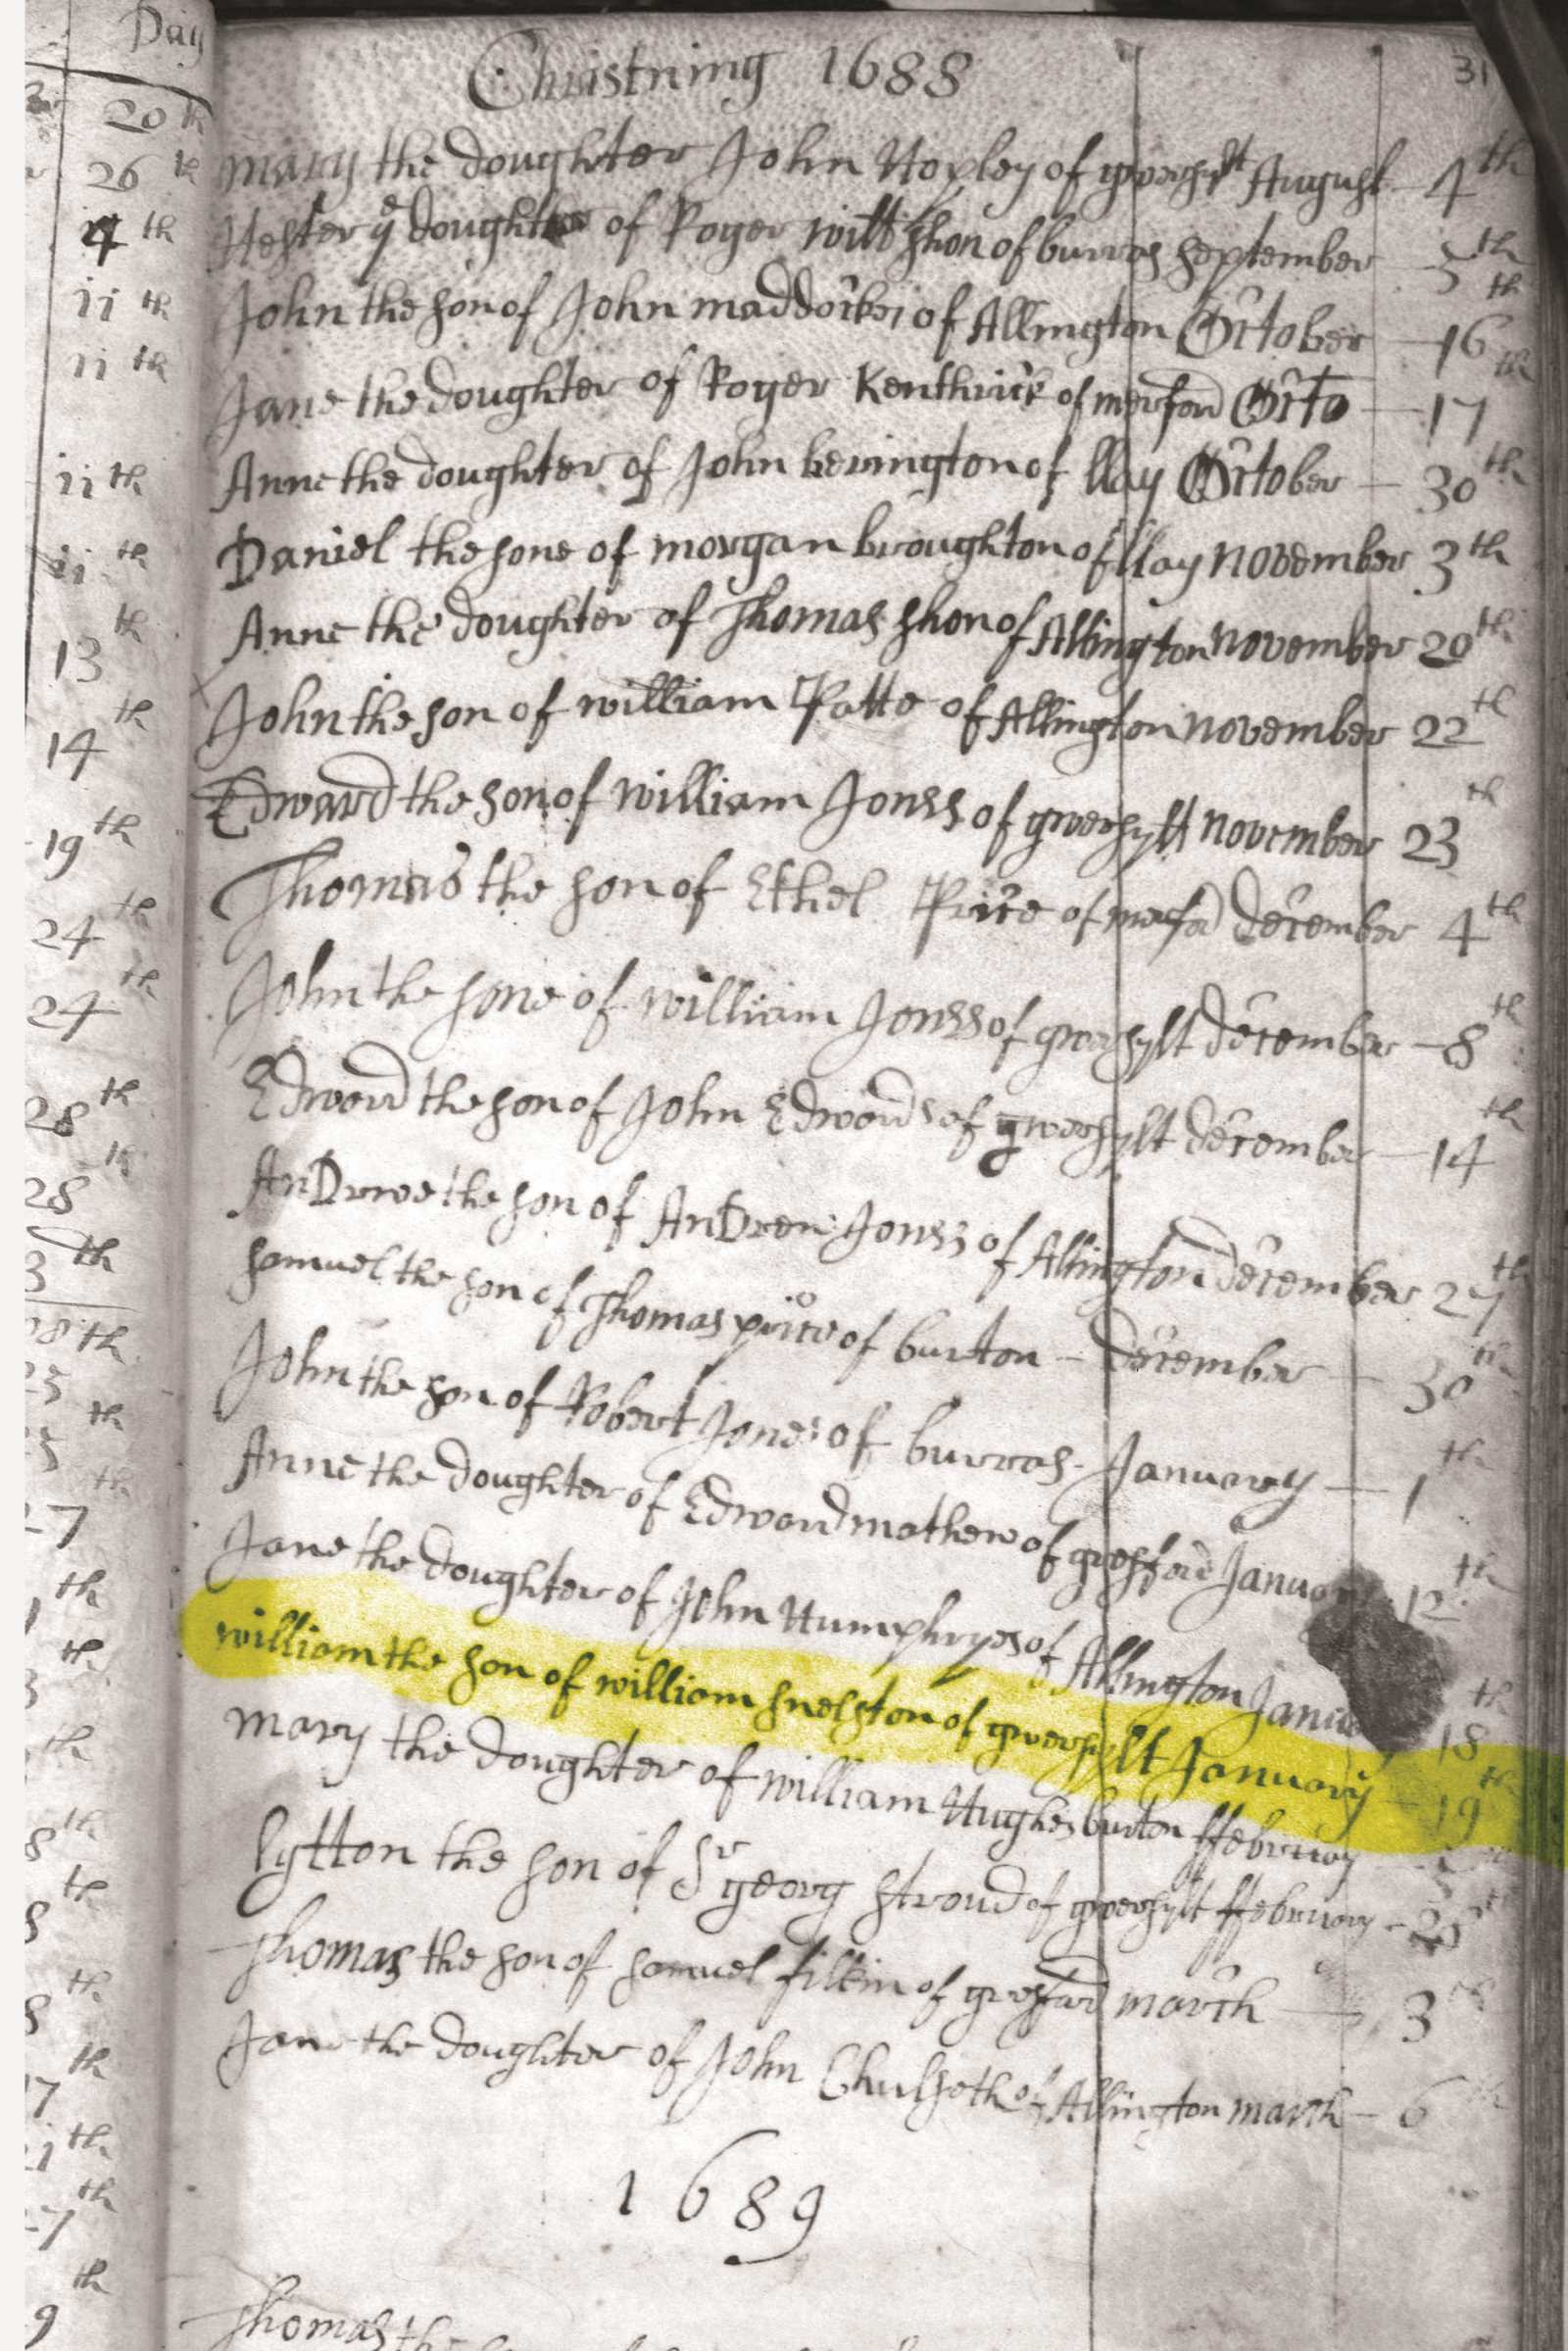 Day
20th
26th
4th
11th
11th
11th
11th
13th
14th
19th
24th
24th
28th
28
3th
Christning 1688
31
Mary the doughter John Hopley of gwersylt August 4th
Hester ye doughter of Roger willshon of burras september 5th
John the son of John maddockes of Allington October 16th
Jane the doughter of Roger Kenthrick of merford Octo 17th
Anne the doughter of John berington of llay October 30th
Daniel the sone of morgan broughton of llay november 3th
Anne the doughter of Thomas shon of Allington november 20th
John the son of william Patte of Allington november 22th
Edward the son of william Joness of gwersyllt november 23th
Thomas the son of Ethel Price of merford december 4th
John the sone of william Joness of gwersylt december 8th
Edword the son of John Edwords of gwersylt december 14th
Andrwe the son of Andrew Joness of Allington december 27th
samuel the son of Thomas price of burton december 30th
John the son of Robert Jones of burras January 1th
Anne the doughter of Edward mathew of gresford January 12th
Jane the doughter of John Humphryes of Allington 18th
william the son of william snelston of gwersylt January 19th
mary the doughter of william Hughes burton ffebruary
lytton the son of Sr georg stroud of gwersylt ffebruary 25
Thomas the son of samuel filkin of gresford march 3th
Jane the doughter of John of Allington march 6
1689
Thomas the